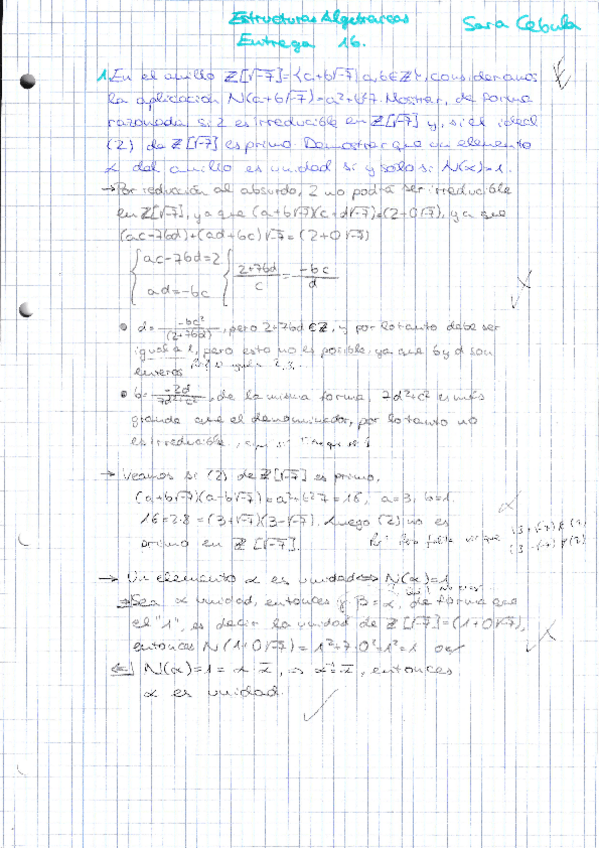 Estructuras Algebraicas
Sara Cebula
Entrega 16.
1. En el anillo Z[√-7]={a+b√-7|a,b∈Z}, consideramos
la aplicación N(a+b√-7)=a²+b²7. Mostrar, de forma
razonada si 2 es irreducible en Z[√-7] y, si el ideal
(2) de Z[√-7] es primo. Demostrar que un elemento
α del anillo es unidad si y solo si N(α)=1.
→ Por reducción al absurdo, 2 no podrá ser irreducible
en Z[√-7], ya que (a+b√-7)(c+d√-7)=(2+0√-7), ya que
(ac-7bd)+(ad+bc)√-7=(2+0√-7)
{ac-7bd=2 { 2+7bd/c = -bc/d
{ad=-bc
• d= -bc²/(2+7bd), pero 2+7bd∈Z, y por lo tanto debe ser
igual a 1, pero esto no es posible, ya que b y d son
enteros
• b= -2d/7d²+c², de la misma forma, 7d²+c² es más
grande que el denominador, por lo tanto no
es irreducible,
→ Veamos si (2) de Z[√-7] es primo.
(a+b√-7)(a-b√-7)=a²+b²7=16, a=3, b=1.
16=2·8=(3+√-7)(3-√-7). Luego (2) no es
primo en Z[√-7].
falta ver que
(3+√-7)∉(2)
(3-√-7)∉(2)
→ Un elemento α es unidad ⇔ N(α)=1
⇒ Sea α unidad, entonces β=α, de forma que
el "1", es decir la unidad de Z[√-7]=(1+0√-7),
entonces N(1+0√-7)=1²+7·0²=1²=1
⇐) N(α)=1= α ᾱ, ⇒ α⁻¹=ᾱ, entonces
α es unidad.